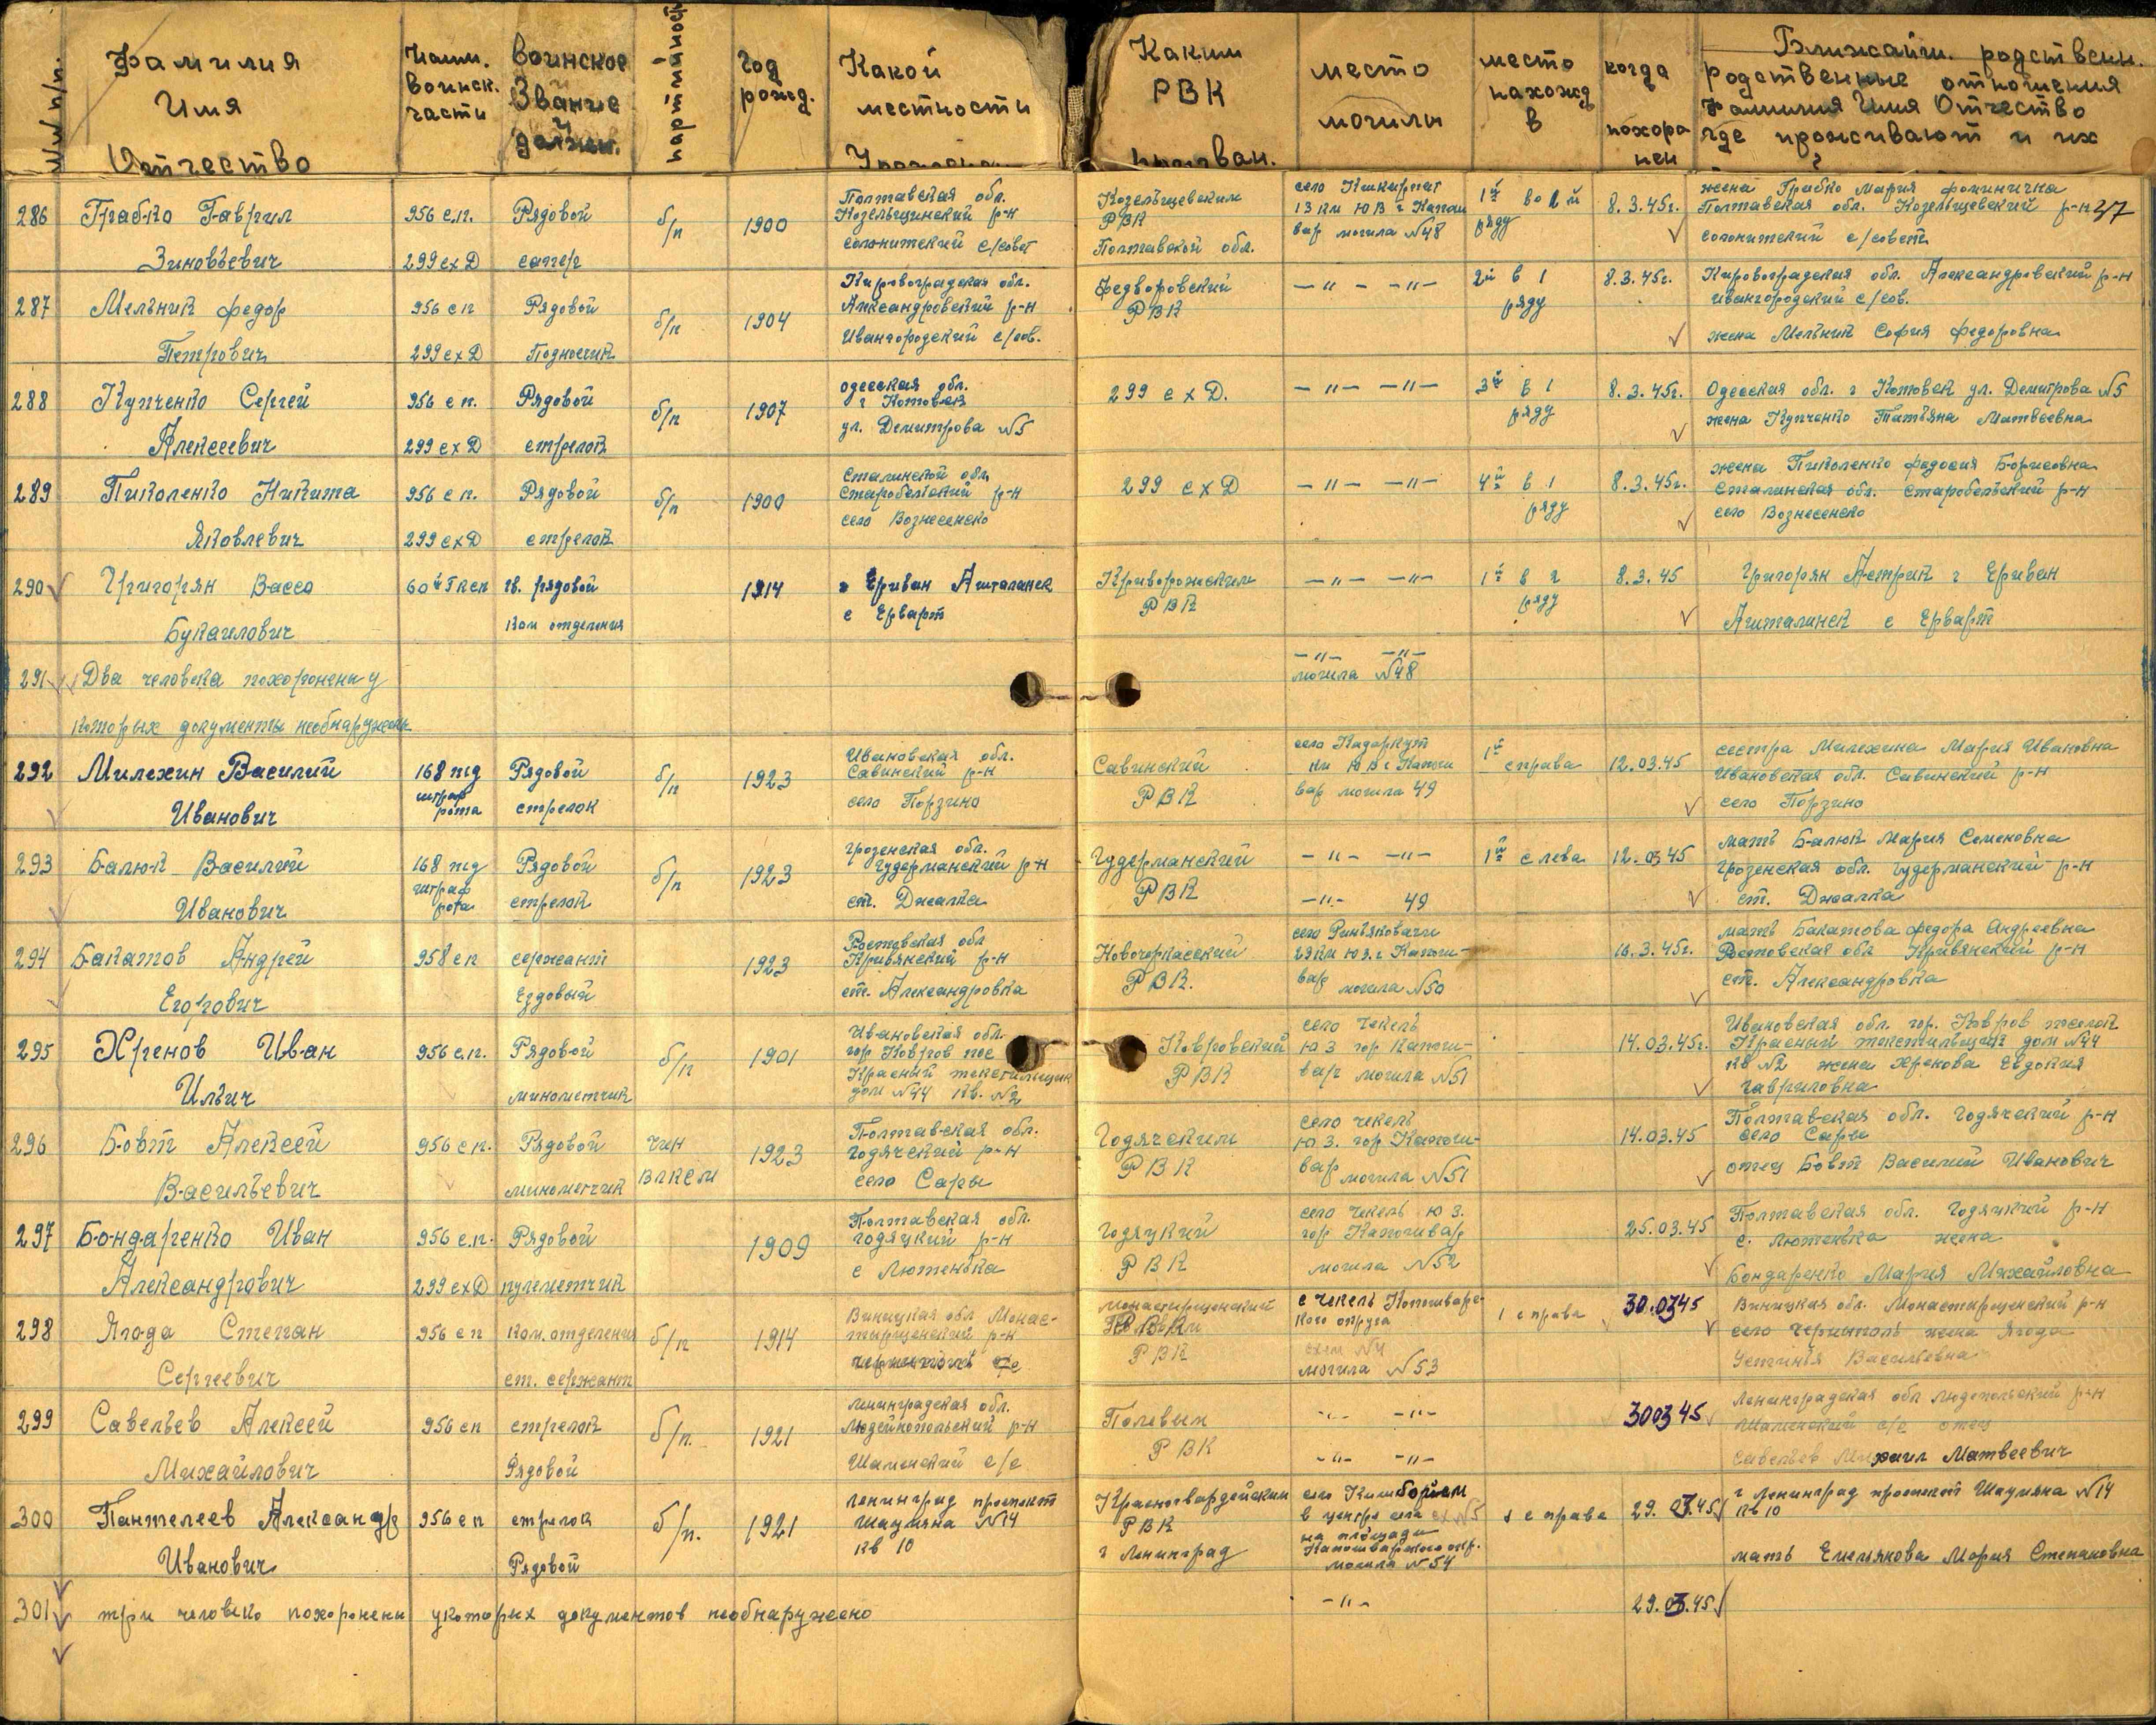 №№ п/п.
Фамилия
Имя
Отчество
Наим.
воинск.
части
воинское
Звание
и
должн.
партийность
год
рожд.
Какой
местности
Каким
РВК
призван.
место
могилы
место
нахожд
в
когда
похоро
нен
Ближайш. родственн.
родственные отношения
Фамилия Имя Отчество
где проживают и их
286 Грабко Гаврил 956 с.п. Рядовой б/п 1900 Полтавская обл.
Козельщинский р-н
сомонитский с/совет
Зиновьевич 299 сх Д сапер
Козельщевским
РВК
Полтавской обл.
село Кишкорпат
13 км ЮВ г Капош
вар могила №48
1й во 2й
ряду
8.3.45г.
жена Грабко Мария фоминична
Полтавская обл. Козельщевский р-н 27
сомонителий с/совет
287 Мельник федор 956 сп Рядовой б/п 1904 Кировоградская обл.
Александровский р-н
Ивангородский с/сов.
Петрович 299 сх Д Подносчик
Федворовский
РВК
—"— —"—
2й в 1
ряду
8.3.45г.
Кировоградская обл. Александровский р-н
ивангородский с/сов.
жена Мельник София федоровна
288 Купченко Сергей 956 сп. Рядовой б/п 1907 одесская обл.
г Котовск
ул. Демитрова №5
Алексеевич 299 сх Д стрелок
299 с х Д.
—"— —"—
3й в 1
ряду
8.3.45г.
Одесская обл. г Котовск ул. Демитрова №5
жена Купченко Татьяна Матвеевна
289 Пиколенко Никита 956 сп. Рядовой б/п 1900 Сталинской обл.
Старобельский р-н
село Вознесенско
Яковлевич 299 сх Д стрелок
299 с х Д
—"— —"—
4й в 1
ряду
8.3.45г.
жена Пиколенко федосия Борисовна
Сталинская обл. Старобельский р-н
село Вознесенско
290 Григорян Вассо 60й Гксп гв. рядовой 1914 г Ериван Ашталанск
с Ерварт
Букаилович ком отделения
Криворожским
РВК
—"— —"—
1й в 2
ряду
8.3.45
Григорян Астрик г Ериван
Ашталинск с Ерварт
291 Два человека похоронены у
которых документы необнаружены
—"— —"—
могила №48
292 Милехин Василий 168 тд Рядовой б/п 1923 Ивановская обл.
Савинский р-н
село Порзино
Иванович штраф
рота стрелок
Савинский
РВК
село Кадаркут
км ЮВ г Капош
вар могила 49
1й
справа
12.03.45
сестра Милехина Мария Ивановна
Ивановская обл. Савинский р-н
село Порзино
293 Балюк Василий 168 тд Рядовой б/п 1923 грозенская обл.
Гудерманский р-н
ст. Джалка
Иванович штраф
рота стрелок
Гудерманский
РВК
—"— —"—
—"— 49
1й слева
12.03 45
мать Балюк Мария Семеновна
грозенская обл. Гудерманский р-н
ст. Джалка
294 Бакатов Андрей 958 сп сержант 1923 Ростовская обл
Кривянский р-н
ст. Александровка
Егорович Ездовый
Новочеркасский
РВК.
вар могила №50
16.3.45г.
мать Бакатова федора Андреевна
Ростовская обл Кривянский р-н
ст. Александровка
295 Хренов Иван 956 с.п. Рядовой б/п 1901 Ивановская обл.
гор Ковров пос
Красный текстильщик
дом №44 кв. №2
Ильич минометчик
Ковровский
РВК
село Чекель
ЮЗ гор Капош-
вар могила №51
14.03.45г.
Ивановская обл. гор. Ковров поселок
Красный текстильщик дом №44
кв №2 жена Хренова Евдокия
Гавриловна
296 Бовт Алексей 956 сп. Рядовой член
ВЛКСМ 1923 Полтавская обл.
годячский р-н
село Сары
Васильевич минометчик
Годячским
РВК
село чекель
ЮЗ. гор Капош-
вар могила №51
14.03.45
Полтавская обл. Годячский р-н
село Сары
отец Бовт Василий Иванович
297 Бондаренко Иван 956 с.п. Рядовой 1909 Полтавская обл.
годяцкий р-н
с Лютенька
Александрович 299 сх Д пулеметчик
Годяцкий
РВК
село Чекель ЮЗ.
гор Капошвар
могила №52
25.03.45
Полтавская обл. Годяцкий р-н
с. Лютенька жена
Бондаренко Мария Михайловна
298 Ягода Степан 956 сп ком. отделения б/п 1914 Виницкая обл Монас-
тырщенский р-н
Сергеевич ст. сержант
Монастирщенский
РВК
с чекель Капошварс-
кого округа
могила №53
1 справа
30.0345
Виницкая обл. Монастирщенский р-н
село Черниполь жена Ягода
Устинья Васильевна
299 Савельев Алексей 956 сп стрелок б/п. 1921 ленинградская обл.
Людейнопольский р-н
Шаменский с/с
Михайлович Рядовой
Полевым
РВК
—"— —"—
—"— —"—
300345
Ленинградская обл людепольский р-н
Шаменский с/с отец
Савельев Михаил Матвеевич
300 Пантелеев Александр 956 сп стрелок б/п. 1921 Ленинград проспект
Шаумяна №14
кв 10
Иванович Рядовой
Красногвардейским
РВК
г Ленинград
село Кишборьем
в центре села сх №5
на площади
Капошварского окр.
могила №54
1 справа
29.03.45
г Ленинград проспект Шаумяна №14
кв 10
мать Емельянова Мария Степановна
301 три человека похоронены укоторых документов необнаружено
—"—
29.03.45